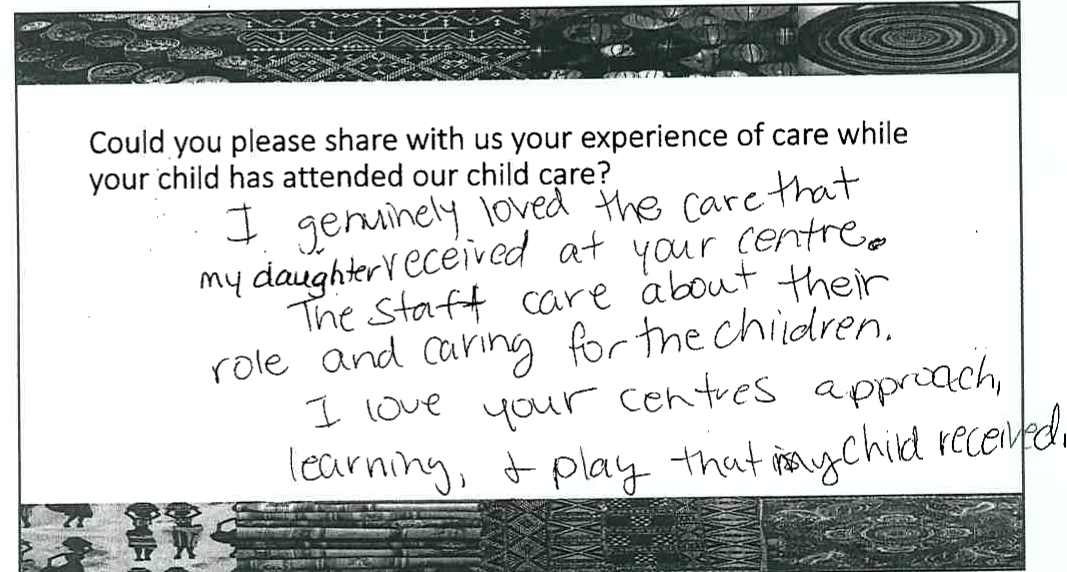 Could you please share with us your experience of care while
your child has attended our child care?
I genuinely loved the care that
my daughter received at your centre.
The staff care about their
role and caring for the children.
I love your centres approach,
learning, & play that my child received.